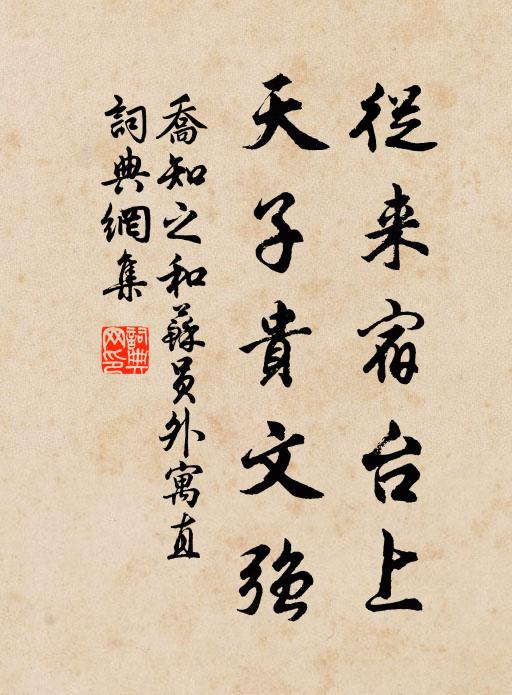 從来宿台上
天子貴文強
喬知之和蘇员外寓直
詞典網集
詞典网印